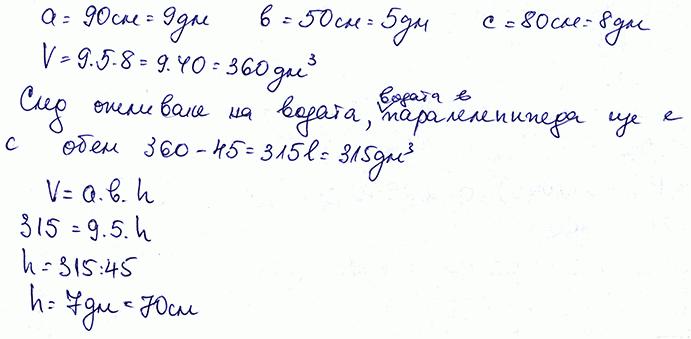 a = 90см = 9дм    b = 50см = 5дм    c = 80см = 8дм
V = 9.5.8 = 9.40 = 360дм³
След отливане на водата, водата в паралелепипеда ще е
с обем 360 - 45 = 315l = 315дм³
V = a.b.h
315 = 9.5.h
h = 315:45
h = 7дм = 70см